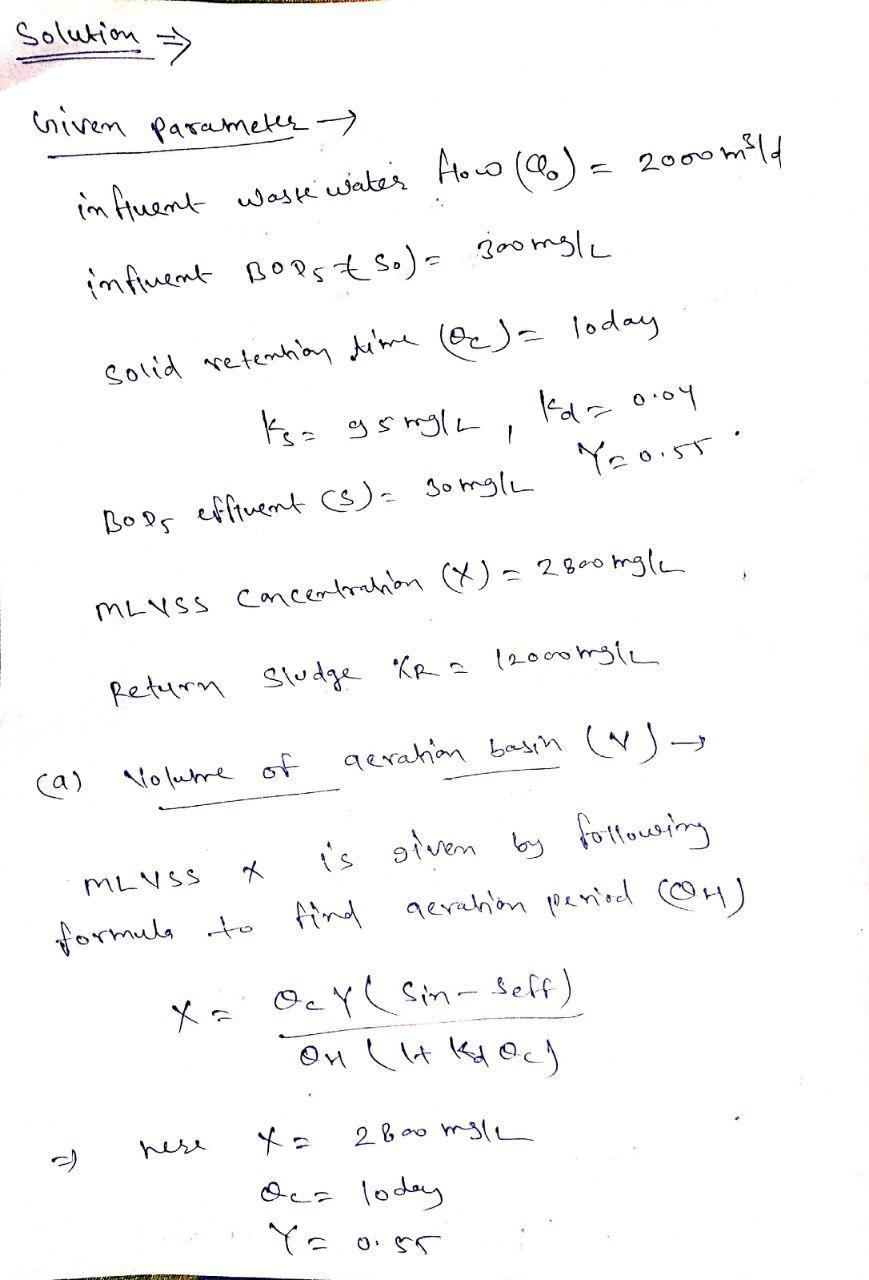 Solution ⇒
Given parameter →
influent waste water flow (Q₀) = 2000 m³/d
influent BOD₅ (S₀) = 300 mg/L
Solid retention time (θc) = 10 day
Ks = 95 mg/L , Kd = 0.04
Y = 0.55 .
BOD₅ effluent (S) = 30 mg/L
MLVSS Concentration (X) = 2800 mg/L
Return Sludge XR = 12000 mg/L
(a) Volume of aeration basin (V) →
MLVSS X is given by following
formula to find aeration period (θH)
X = θc Y ( Sin - Seff ) / θH ( 1 + Kd θc )
⇒ here X = 2800 mg/L
θc = 10 day
Y = 0.55